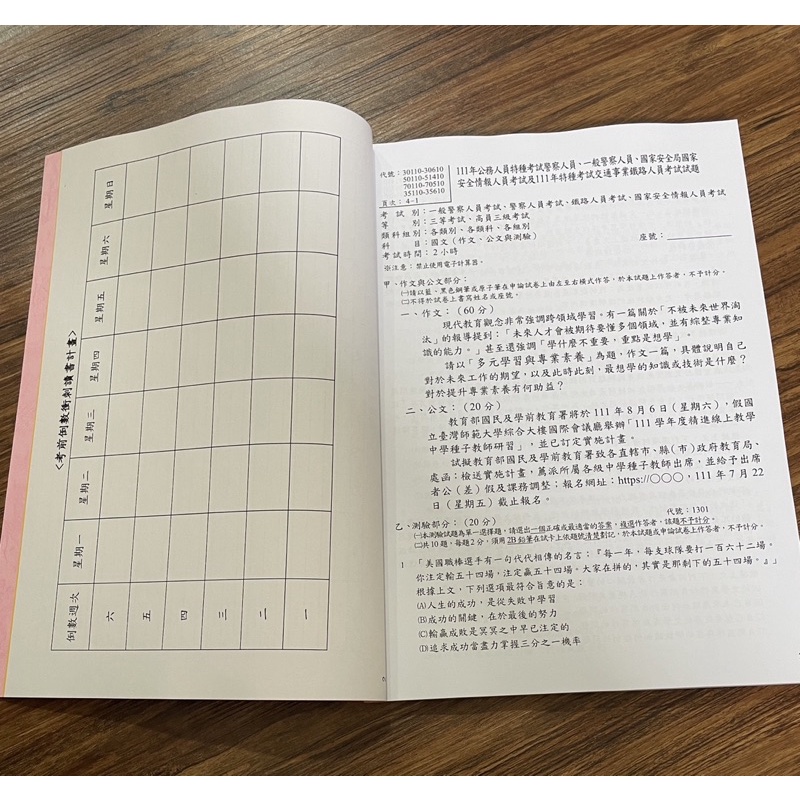 <考前倒數衝刺讀書計畫>
倒數週次 星期一 星期二 星期三 星期四 星期五 星期六 星期日
六
五
四
三
二
一
代號：30110-30610
50110-51410
70110-70510
35110-35610
頁次：4-1
111年公務人員特種考試警察人員、一般警察人員、國家安全局國家
安全情報人員考試及111年特種考試交通事業鐵路人員考試試題
考試別：一般警察人員考試、警察人員考試、鐵路人員考試、國家安全情報人員考試
等別：三等考試、高員三級考試
類科組別：各類別、各類科、各組別
科目：國文（作文、公文與測驗）
考試時間：2小時
座號：
※注意：禁止使用電子計算器。
甲、作文與公文部分：
㈠請以藍、黑色鋼筆或原子筆在申論試卷上由左至右橫式作答，於本試題上作答者，不予計分。
㈡不得於試卷上書寫姓名或座號。
一、作文：（60分）
現代教育觀念非常強調跨領域學習。有一篇關於「不被未來世界淘
汰」的報導提到：「未來人才會被期待要懂多個領域，並有綜整專業知
識的能力。」甚至還強調「學什麼不重要，重點是想學」。
請以「多元學習與專業素養」為題，作文一篇，具體說明自己
對於未來工作的期望，以及此時此刻，最想學的知識或技術是什麼？
對於提升專業素養有何助益？
二、公文：（20分）
教育部國民及學前教育署將於111年8月6日（星期六），假國
立臺灣師範大學綜合大樓國際會議廳舉辦「111學年度精進線上教學
中學種子教師研習」，並已訂定實施計畫。
試擬教育部國民及學前教育署致各直轄市、縣（市）政府教育局、
處函：檢送實施計畫，薦派所屬各級中學種子教師出席，並給予出席
者公（差）假及課務調整；報名網址：https://○○○，111年7月22
日（星期五）截止報名。
代號：1301
乙、測驗部分：（20分）
㈠本測驗試題為單一選擇題，請選出一個正確或最適當的答案，複選作答者，該題不予計分。
㈡共10題，每題2分，須用2B鉛筆在試卡上依題號清楚劃記，於本試題或申論試卷上作答者，不予計分。
1 「美國職棒選手有一句代代相傳的名言：『每一年，每支球隊要打一百六十二場。
你注定輸五十四場，注定贏五十四場。大家在拼的，其實是那剩下的五十四場。』」
根據上文，下列選項最符合旨意的是：
(A)人生的成功，是從失敗中學習
(B)成功的關鍵，在於最後的努力
(C)輸贏成敗是冥冥之中早已注定的
(D)追求成功當盡力掌握三分之一機率